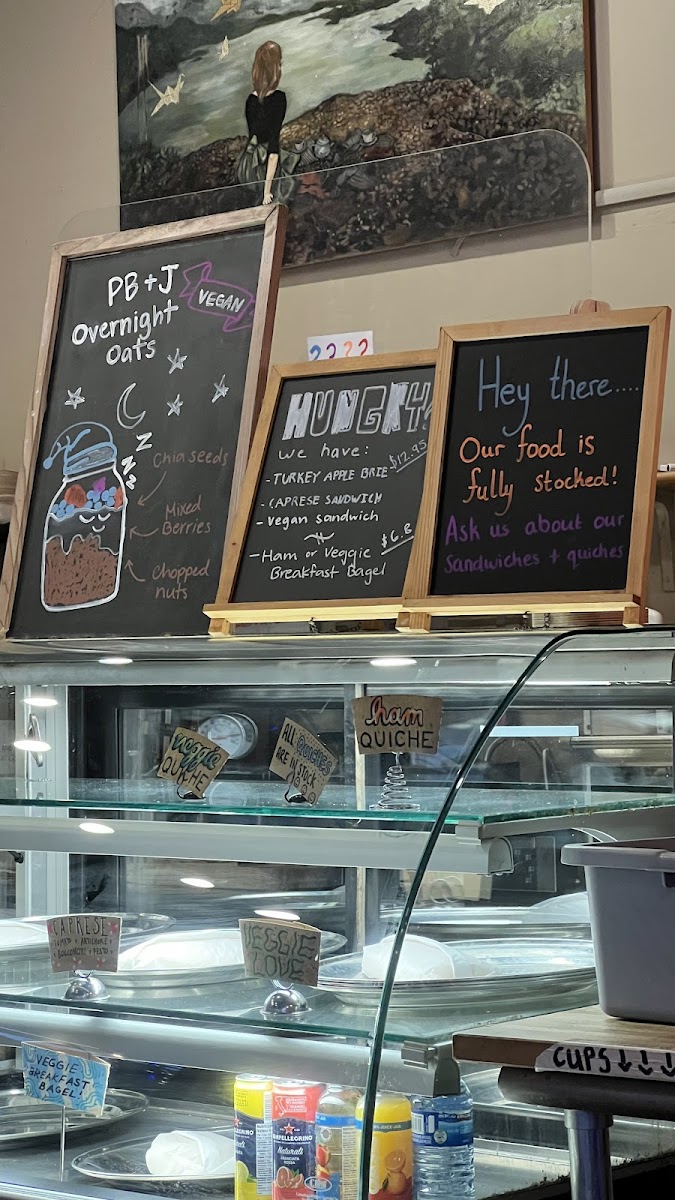 PB+J
VEGAN
Overnight
Oats
Z
Z
Z
Chia seeds
Mixed
Berries
Chopped
nuts
? ? ? ?
HUNGRY?
we have:
- TURKEY APPLE BRIE $12.95
- CAPRESE SANDWICH
- vegan sandwich
- Ham or Veggie
Breakfast Bagel
Hey there....
Our food is
fully stocked!
Ask us about our
Sandwiches + quiches
veggie
QUICHE
ALL Quiches
ARE IN STOCK
ham
QUICHE
CAPRESE
TOMATO + ARTICHOKE +
BOCCONCINI + PESTO
VEGGIE
LOVE
VEGGIE
BREAKFAST
BAGEL!
CUPS ↓↓↓↓
SANPELLEGRINO
Naturali